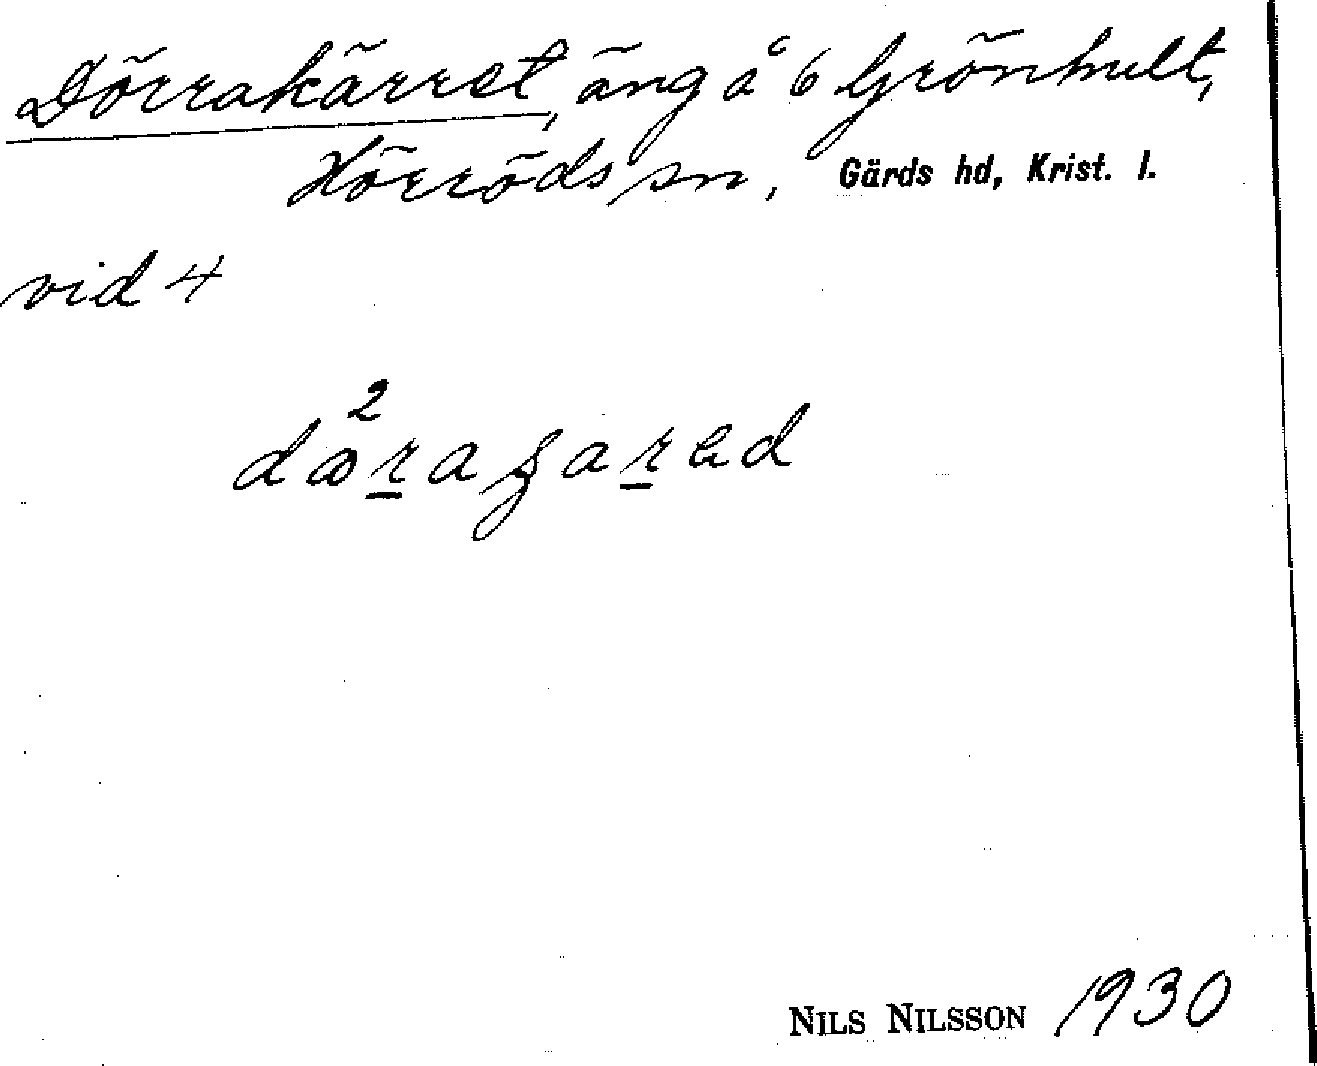 Dörrakärret, äng å 6 Grönhult,
Hörröds sn, Gärds hd, Krist. l.
vid 4
NILS NILSSON 1930